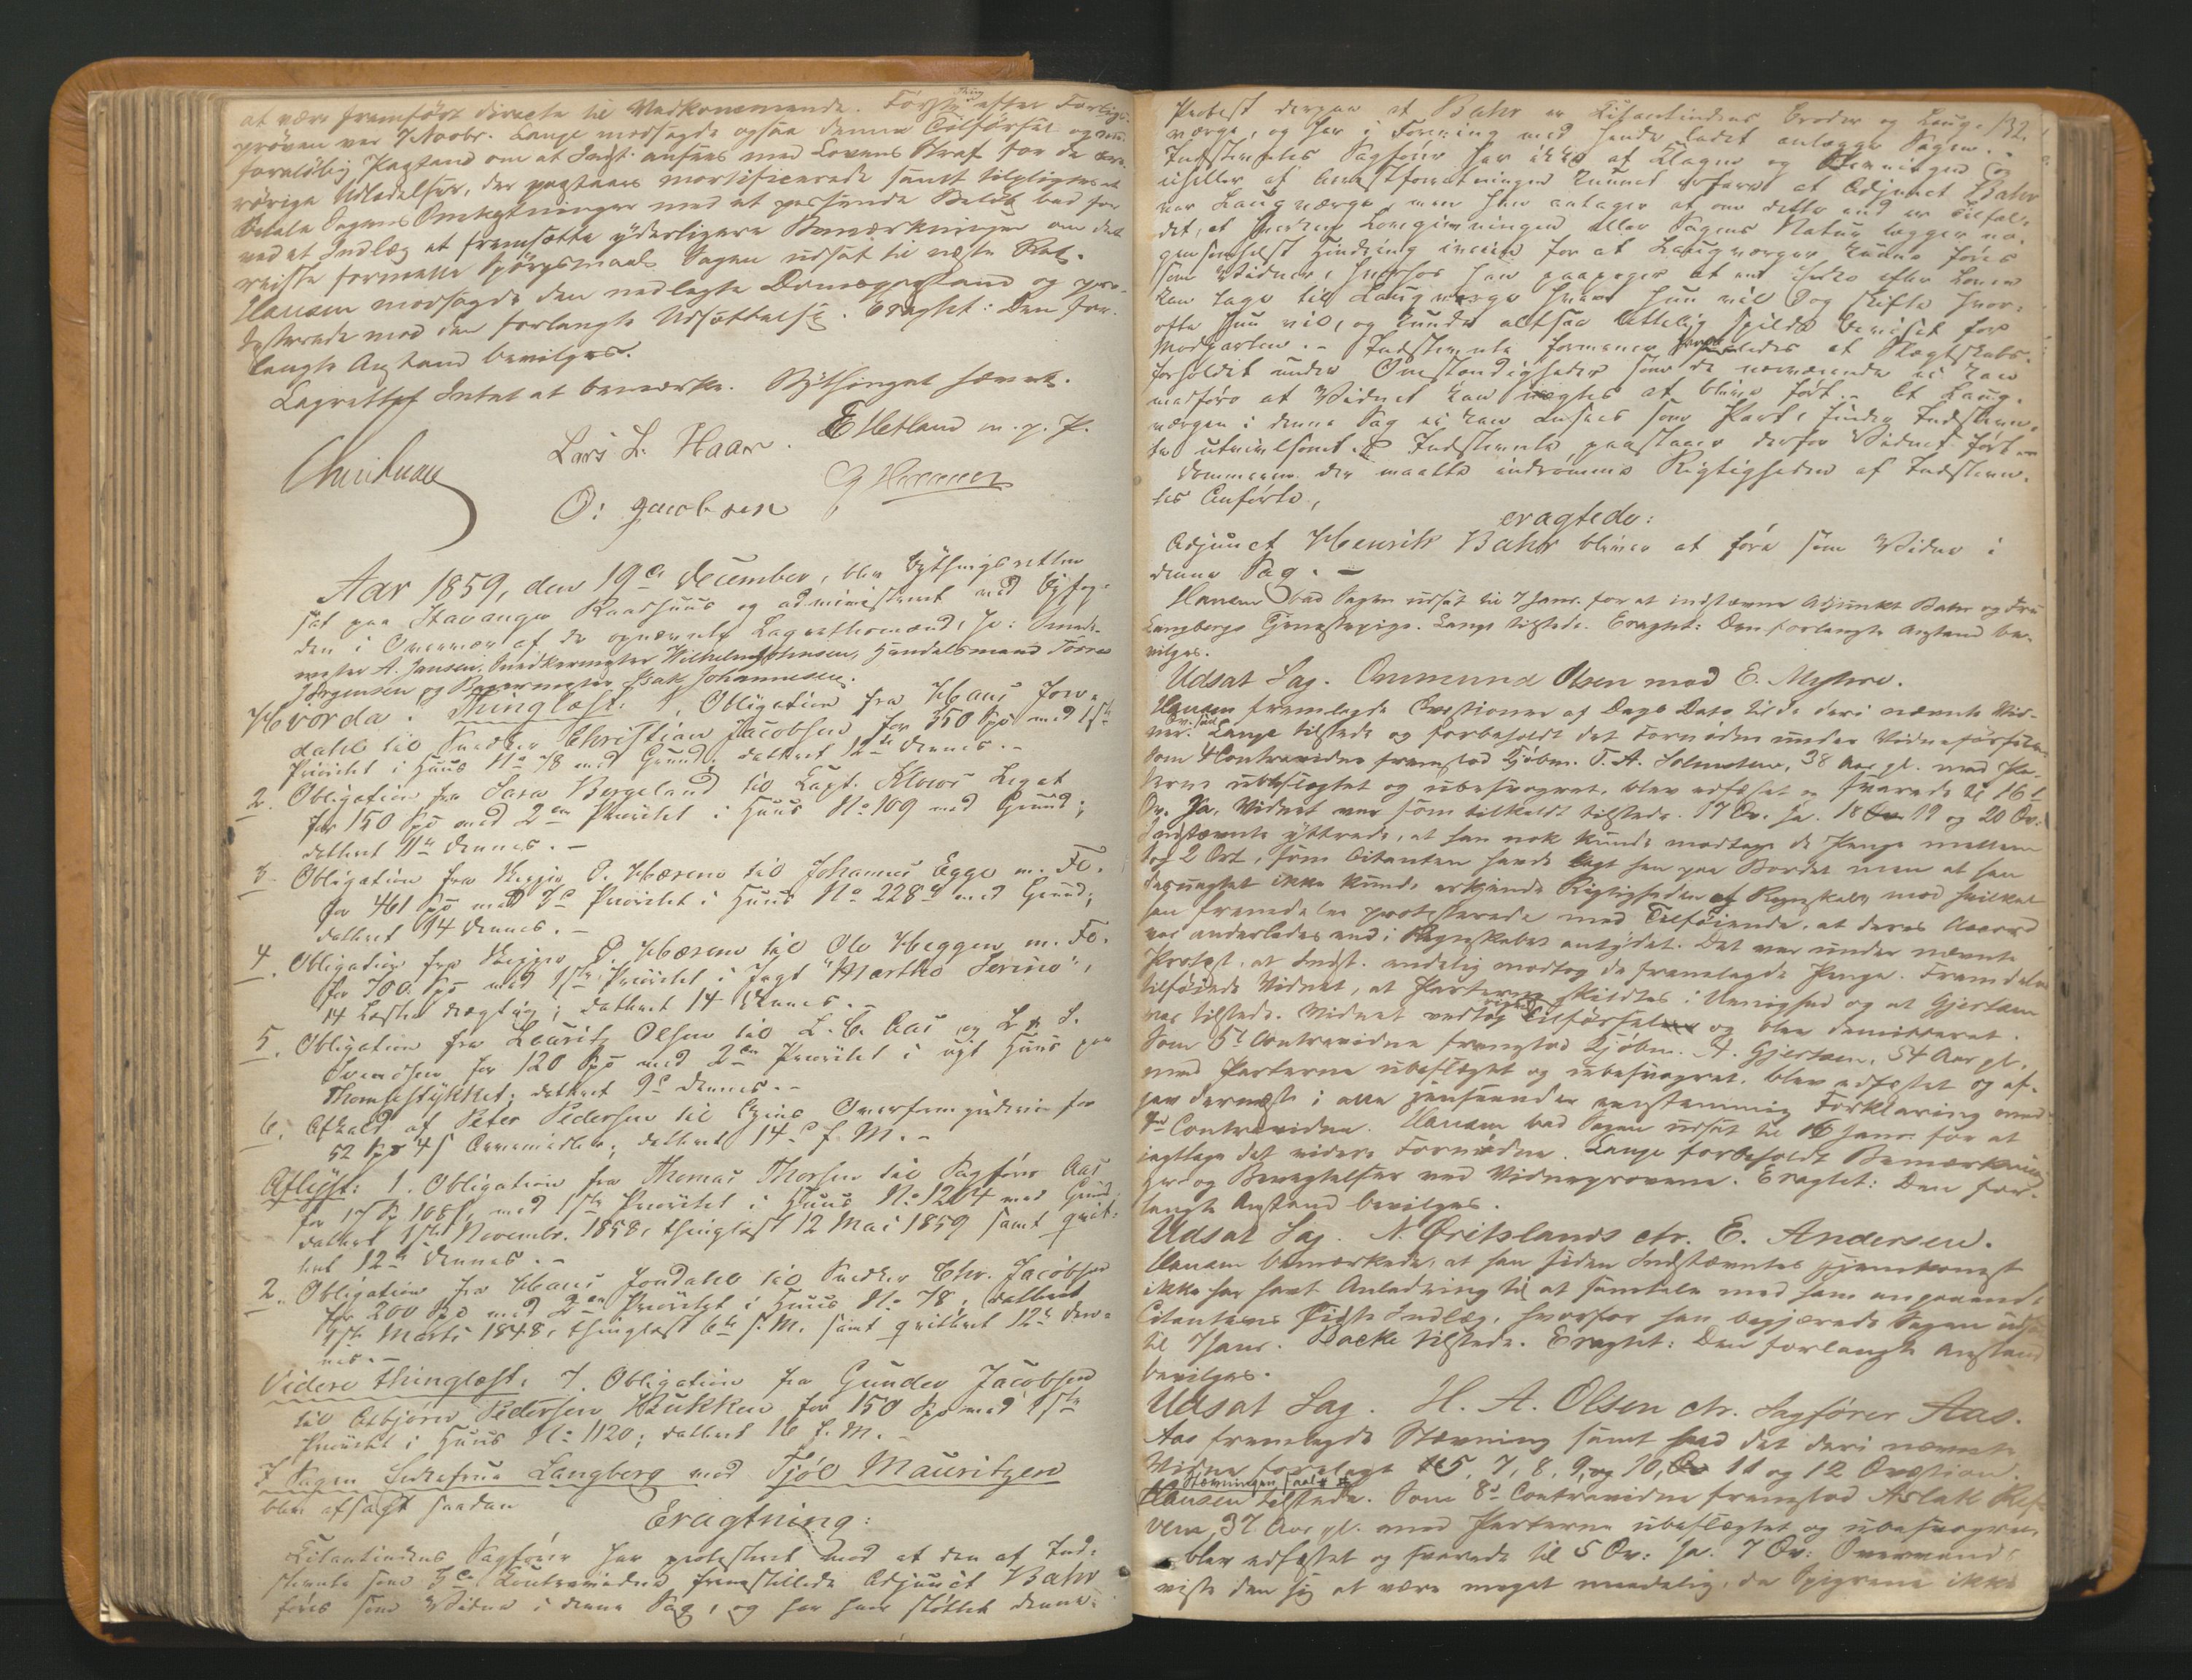 at være fremført directe til Vedkommende. Første Thing efter Forligs-
prøven var 7 Novbr. Lange modsagde ogsaa denne Tilførsel og
foreløbig Paastand om at Indst. ansees med Lovens Straf for de ære-
rørige Udladelser, der paastaaes mortificerede samt tilpligtes at
betale Sagens Omkostninger med et passende Beløb bad for
ved et Indlæg at fremsætte yderligere Bemærkninger om det
reiste formelle Spørgsmaal Sagen udsat til næste Ret.
Hansen modsagde den nedlagte Domspaastand og pro-
testerede mod den forlangte Udsættelse. Eragtet: Den for-
langte Anstand bevilges.
Lagrettet Intet at bemærke. Bythinget hævet.
Lars L. Haar. E Hetland m. p. P.
O: Jacobsen
Aar 1859, den 19de December, blev Bythingsretten
sat paa Stavanger Raadhuus og administreret ved Byfog-
den i Overvær af de opnævnte Lagrettesmænd, Hr: Smed-
mester A. Jansen, Snedkermester Wilhelm Johnsen, Handelsmand Tørres
Jørgensen og Bagermester Isak Johannesen.
Hvorda: Thinglæst: 1. Obligation fra Hans Jon-
dahl til Snedker Christian Jacobsen for 350 Spd med 1ste
Prioritet i Huus No 78 med Grund; dateret 12te dennes. -
2. Obligation fra Sara Bergeland til Capt. Klows Legat
for 150 Spd med 2en Prioritet i Huus No 109 med Grund;
dateret 11te dennes. -
3. Obligation fra P. Hæren til Johannes Egge m. Fl.
for 461 Spd med 3die Prioritet i Huus No 228 med Grund;
dateret 14 dennes. -
4. Obligation fra P. Hæren til Ole Heggen m. Fl.
for 700 Spd med 1ste Prioritet i Jagt "Martha Serine",
14 Læster drægtig; dateret 14 dennes. -
5. Obligation fra Lauritz Olsen til L. C. Aas og L. S.
Svendsen for 120 Spd med 2den Prioritet i nyt Huus paa
Thomsestykket; dateret 9de dennes. -
6. Afkald af Peter Pedersen til Byens Overformynderie for
52 Spd 45 s Arvemidler; dateret 14de f. M. -
Aflyst: 1. Obligation fra Thomas Thorsen til Sagfører Aas
for 17 Spd 108 s, med 1ste Prioritet i Huus No 1204 med Grund
dateret 1ste Novembr. 1858, thinglæst 12 Mai 1859 samt qvit-
teret 12te dennes. -
2. Obligation fra Hans Jondahl til Snedker Chr. Jacobsen
for 200 Spd med 2en Prioritet i Huus No 78, dateret
1ste Marts 1848, thinglæst 6te s. M. samt qvitteret 12te den-
nes. -
Videre thinglæst: 7. Obligation fra Gunder Jacobsen
til Asbjørn Pedersen Haukken for 150 Spd med 1ste
Prioritet i Huus No 1120; dateret 16 f. M. -
I Sagen Enkefrue Langberg mod Tjøl Mauritzen
blev afsagt saadan
Eragtning:
Citantindens Sagfører har protesteret mod at den af Ind-
stevnte som 3die Contravidne fremstillede Adjunct Bahr
føres som Vidne i denne Sag, og har han støttet denne
132.
Protest derpaa at Bahr er Citantindens Broder og Laug-
værge, og har i Forening med hende ladet anlægge Sagen. -
Indstevntes Sagfører har ikke af Klagen og Stevningen og
ei heller af Arrestforretningen kunnet erfare at Adjunct Bahr
var Laugværge, men han antager at om dette end er Tilfæl-
det, at hverken Lovgivningen eller Sagens Natur lægger no-
gensomhelst Hindring iveien for at Laugværger kunne føres
som Vidner, hvorhos han paapeger at en Enke efter Loven
kan tage til Laugværge hvem hun vil og skifte hvor-
ofte hun vil, og kunde altsaa lettelig spilde Beviset for
Modparten. - Indstevnte formener fremdeles at Slægtskabs-
forholdet under Omstændigheder som de nærværende ei kan
medføre at Vidnet kan nægtes at blive ført. - At Laug-
værgen i denne Sag ei kan ansees som Part, finder Indstevn-
te utvivlsomt. Indstevnte paastaaer derfor Vidnet ført.
Dommeren der maatte indrømme Rigtigheden af Indstevn-
tes Anførte,
eragtede:
Adjunct Henrik Bahr bliver at føre som Vidne i
denne Sag. -
Hansen bad Sagen udsat til 7 Janr. for at indstævne Adjunkt Bahr og Fru
Langbergs Tjenestepige. Lange tilstede. Eragtet: Den forlangte Anstand be-
vilges.
Udsat Sag. Ommund Olsen mod E. Myhre.
Hansen fremlagde Qvæstioner af Dags Dato til de deri nævnte Vid-
ner. Lange tilstede og forbeholdt det Fornødne under Vidneførselen.
Som 4 Contravidne fremstod Kjøbm. T. A. Holmsen, 38 Aar gl. med Par-
terne ubeslægtet og ubesvogret, blev edfæstet og svarede til 16de
Qv. Ja. Vidnet var som tilkaldt tilstede. 17 Qv. Ja. 18 19 og 20 Qv:
Indstævnte yttrede, at han nok kunde modtage de Penge mellem
og 2 Ort, som Citanten havde lagt hen paa Bordet men at han
desuagtet ikke kunde erkjende Rigtigheden af Regnskabet mod hvilket
han fremdeles protesterede med Tilføiende, at deres Accord
var anderledes end i Regnskabet antydet. Det var under nævnte
Protest, at Indst. endelig modtog de fremlagde Penge. Fremdeles
tilføiede Vidnet, at Parterne skildtes i Uenighed og at Gjertsen
var tilstede. Vidnet vedtog Tilførselen og blev demitteret.
Som 5te Contravidne fremstod Kjøbm. A. Gjertsen, 54 Aar gl.
med Parterne ubeslægtet og ubesvogret, blev edfæstet og af-
gav dernæst i alle Henseender eenstemmig Forklaring med
4de Contravidne. Hansen bad Sagen udsat til Janr. for at
iagttage det videre Fornødne. Lange forbeholdt Bemærkning-
er og Benægtelser ved Vidneprovene. Eragtet: Den for-
langte Anstand bevilges.
Udsat Sag. N. Qritslands ctr. E. Andersen.
Hansen bemærkede, at han siden Indstævntes Hjemkomst
ikke har havt Anledning til at samtale med ham angaaende
Citantens sidste Indlæg, hvorfor han begjærede Sagen udsat
til 7 Janr. Backe tilstede. Eragtet: Den forlangte Anstand
bevilges.
Udsat Sag. H. A. Olsen ctr. Sagfører Aas.
Aas fremlagde Stævning samt bad det deri nævnte
Vidne forelagt 5, 7, 8, 9, og 10, 11 og 12 Qvæstion.
Hansen tilstede. Som 8de Contravidne fremstod Aslak Ref-
vem, 37 Aar gl. med Parterne ubeslægtet og ubesvogret,
blev edfæstet og svarede til 5 Qv: Ja. 7 Qv:
viste den sig at være meget maadelig, da Spigrene ikke